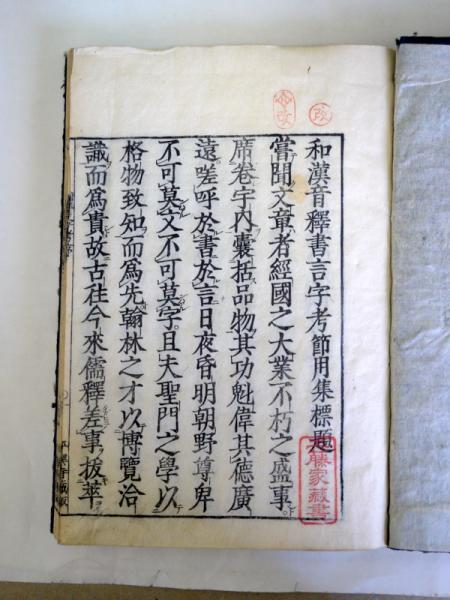 和漢音釋書言字考節用集標題
嘗聞文章者經國之大業不朽之盛事
席卷宇内囊括品物其功魁偉其德廣
遠嗟呼於書於言日夜昏明朝野尊卑
不可莫文不可莫字且夫聖門之學以
格物致知而爲先翰林之才以博覽洽
識而爲貴故古往今來儒釋差事拔萃
藤家藏書
改